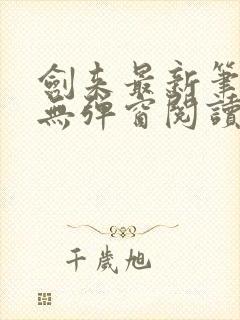 劍來最新筆
無彈窗閱讀
千歲旭